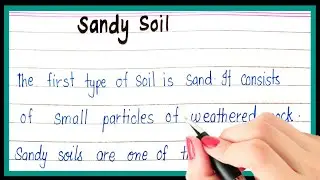 Sandy Soil
The first type of soil is sand It consists
of small particles of weathered
Sandy soils are one of